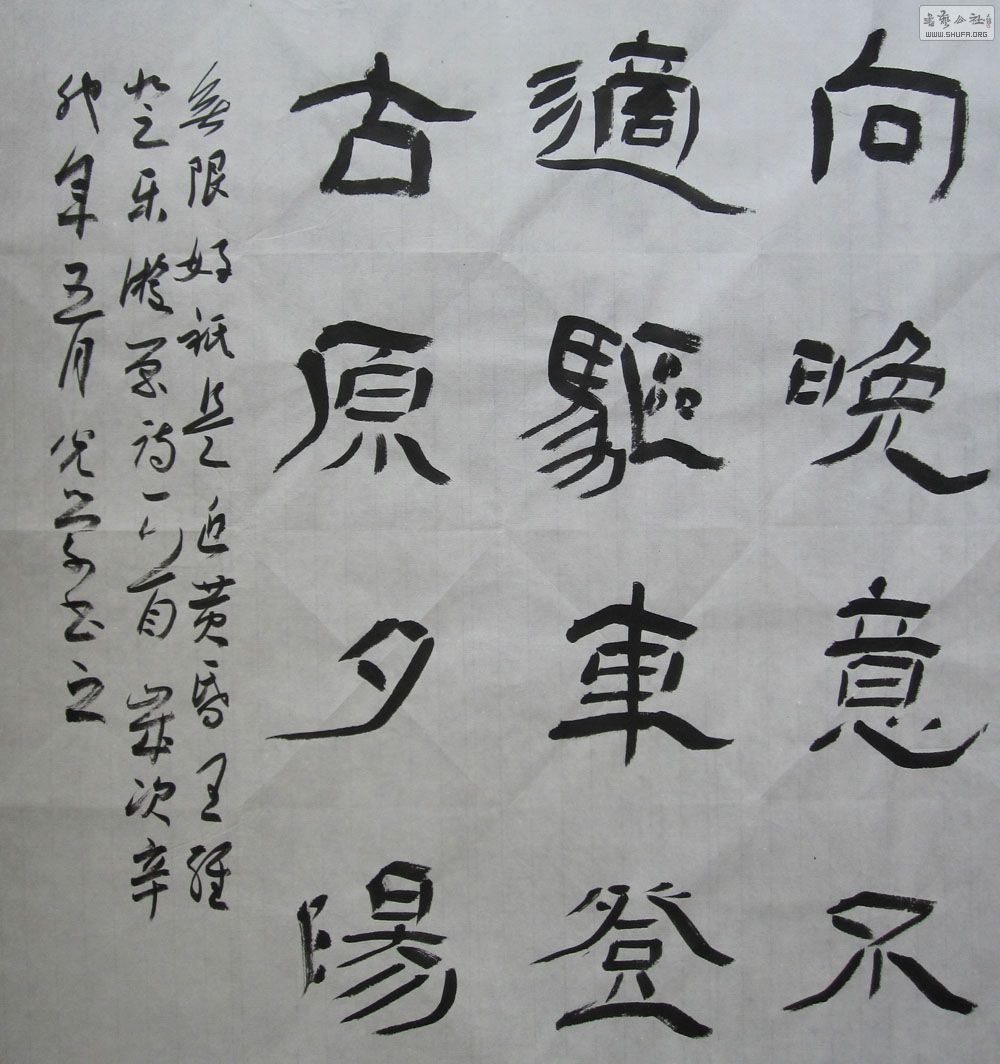 書藝公社
WWW.SHUFA.ORG
向晚意不
適驅車登
古原夕陽
無限好祇是近黄昏王維
登乐遊原诗一首歲次辛
卯年五月书之